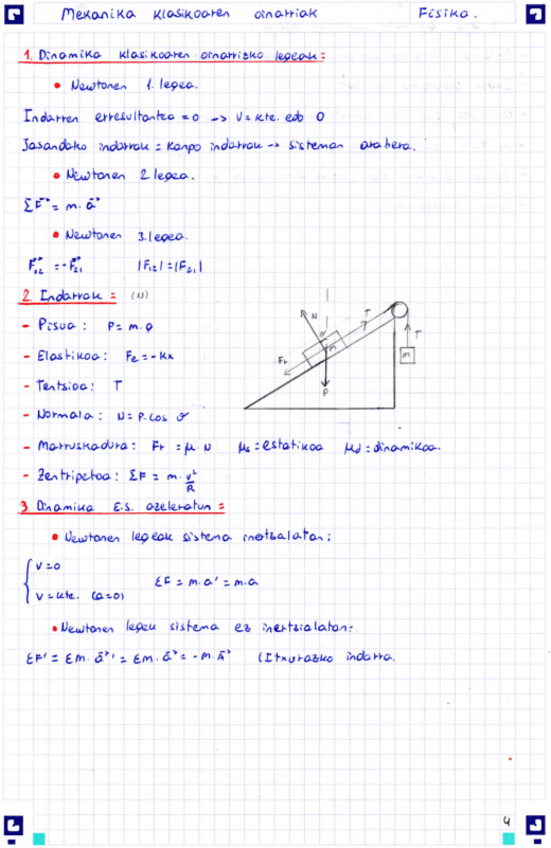 Mekanika klasikoaren oinarriak Fisika.
1. Dinamika klasikoaren oinarrizko legeak:
• Newtonen 1. legea.
Indarren erresultantea = 0 → V = kte. edo 0
Jasandako indarrak = kanpo indarrak → sisteman arabera.
• Newtonen 2. legea.
ΣF⃗ = m · a⃗
• Newtonen 3. legea.
F⃗₁₂ = -F⃗₂₁ |F₁₂| = |F₂₁|
2. Indarrak = (N)
- Pisua: P = m · g
- Elastikoa: Fe = -kx
- Tentsioa: T
- Normala: N = P · cos
- Marruskadura: Fr = μ · N μs = estatikoa μd = dinamikoa.
- Zentripetoa: ΣF = m · v²/R
N
T
T
m
m
Fr
P
3. Dinamika E.S. azeleratun =
• Newtonen legeak sistema inertzialatan:
V = 0
V = kte. (a = 0)
ΣF = m · a' = m · a
• Newtonen legeu sistema ez inertzialatan:
ΣF' = Σm · a⃗' = Σm · a⃗ = - m · A⃗ (Itxurazko indarra.
4